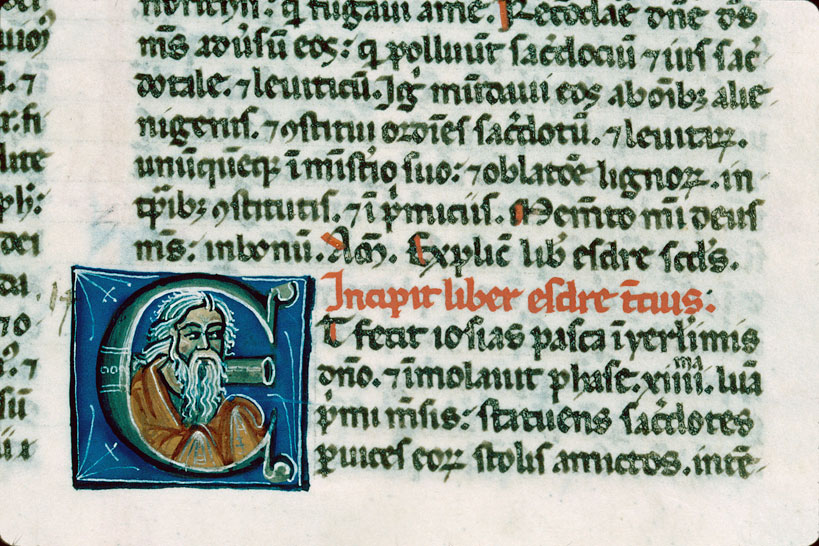 nerint: q fugaui ame. Recordae dñe ds̄
mīs adūsū eos: q polluūt sac̄dociū ⁊ ius sac̄
dotale. ⁊ leuiticū. Ig̅ mūdaui eos aboībꝫ alie
nigenis. ⁊ ꝯstitui ordīes sac̄dotū. ⁊ leuitaꝝ.
unūquēqꝫ ī mīst̄io suo: ⁊ oblatōe lignoꝝ. in
tp̄ibꝫ ꝯstitutis. ⁊ ī p̄miciis. Mem̄to mī deus
m̄s: in bonū. Am̄. Explic̄ lib̄ esdre scd̄s.
Incipit liber esdre īcius:
Et fecit iosias pasca ī ycrl̄imis
dño. ⁊ īmolauit phase. xiiii.ma luā
p̄mi m̄sis: statuens sac̄dotes
p uices eoꝝ stolis amictos. in tē